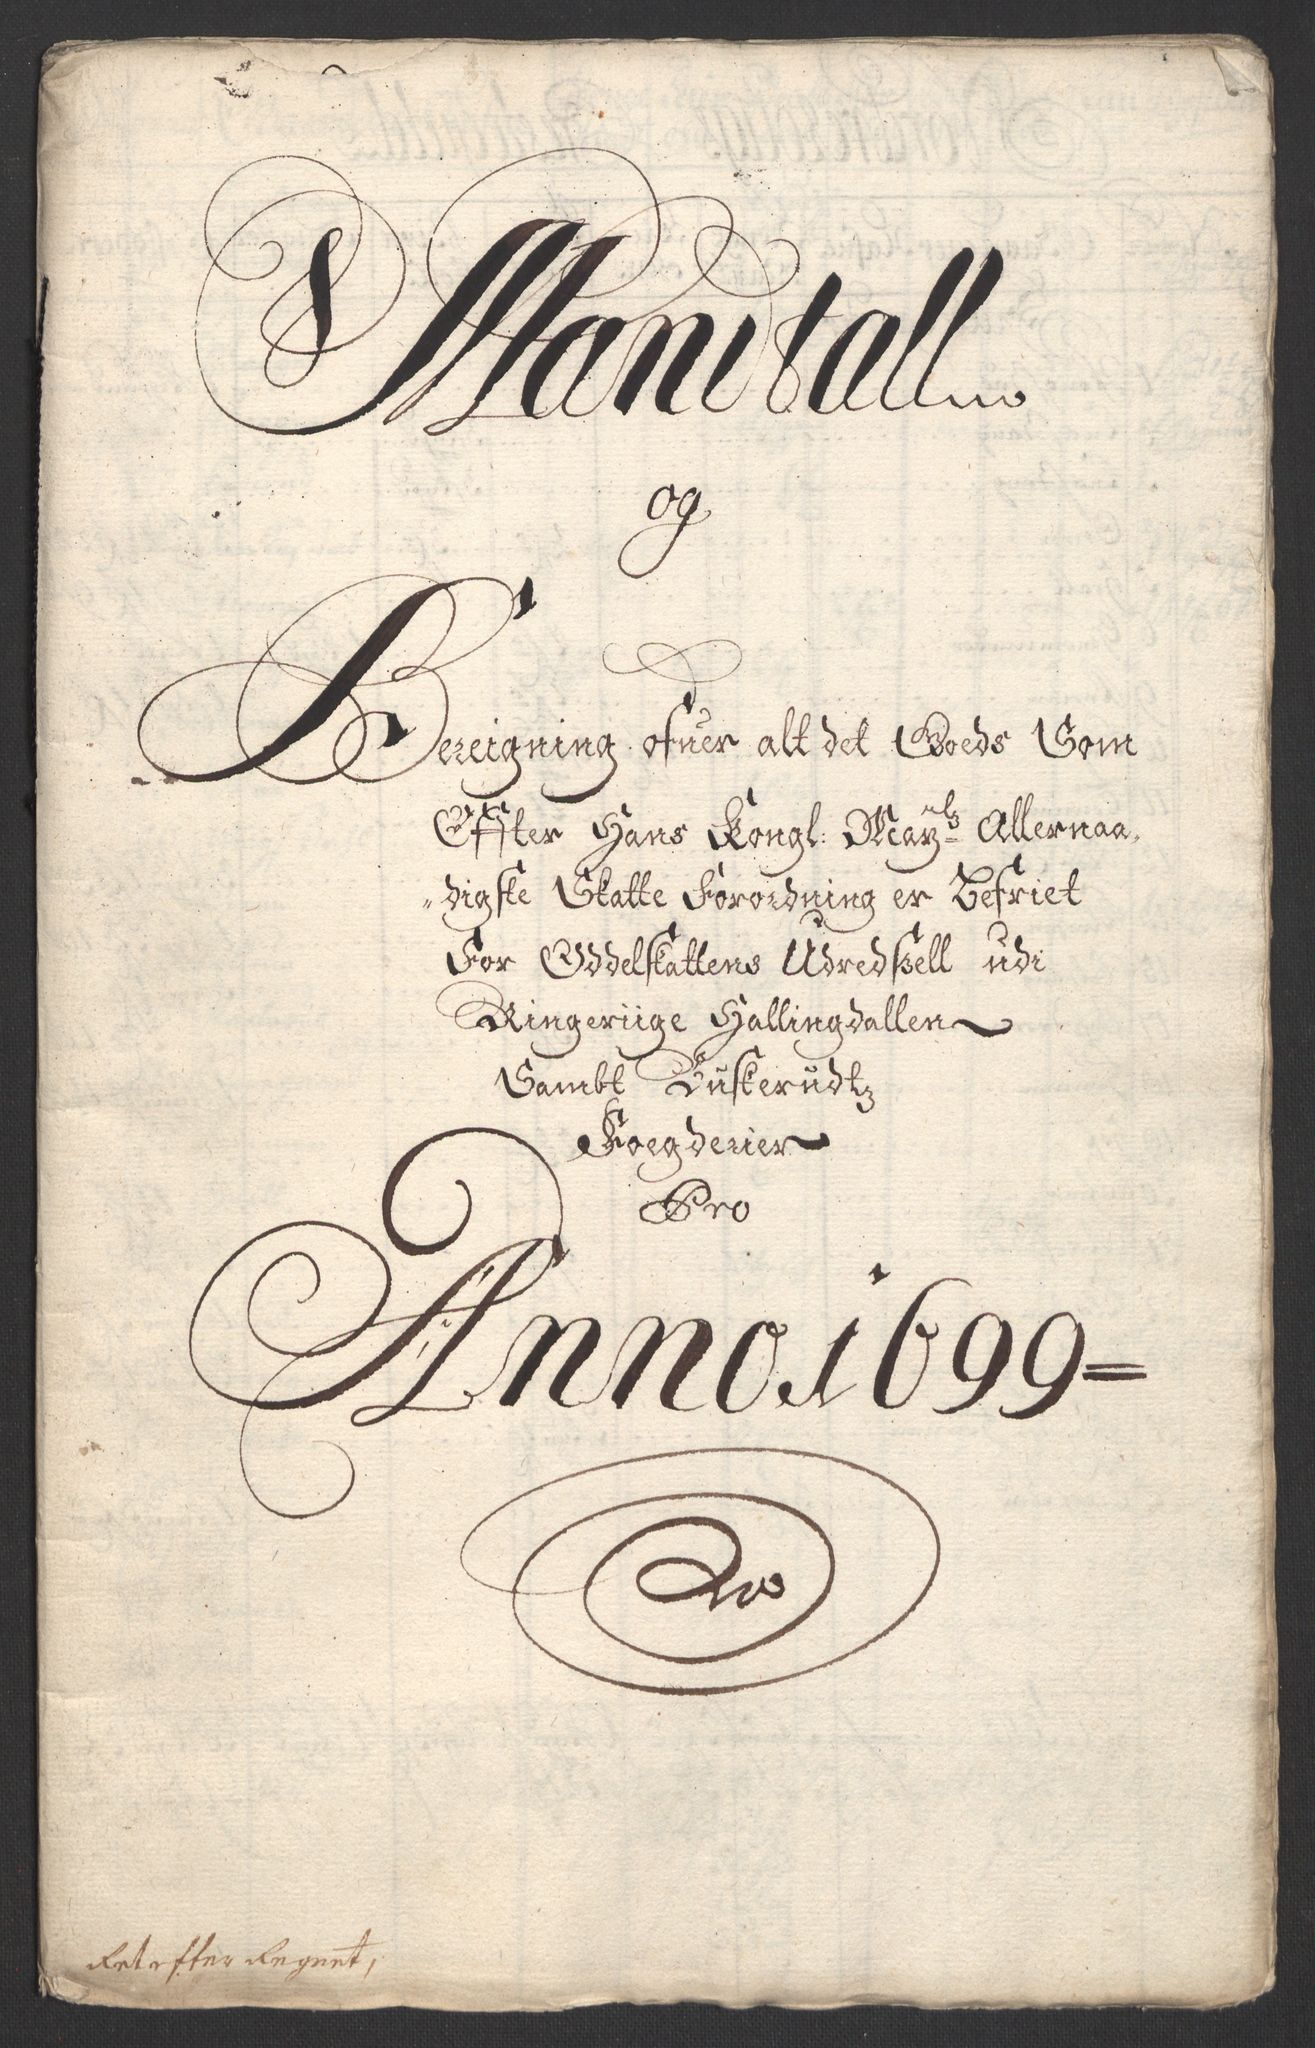 Mantall
og
Bereigning ofuer alt det Goeds Som
Effter Hans Kongl: Mayts Allernaa,
digste Skatte Forordning er befriet
For Oddelskattens Udredsell udi
Ringeriige Hallingdallen
Sambt Buskerudtz
Foegderier
Pro
Anno 1699=
Ret efter Regnet,